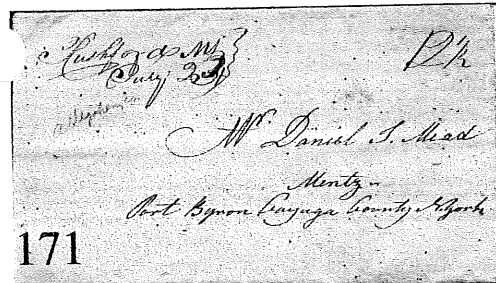 Rushford NY
July 23 12½
Mr. Daniel S. Mead
Mentz
Port Byron Cayuga County N.York
171